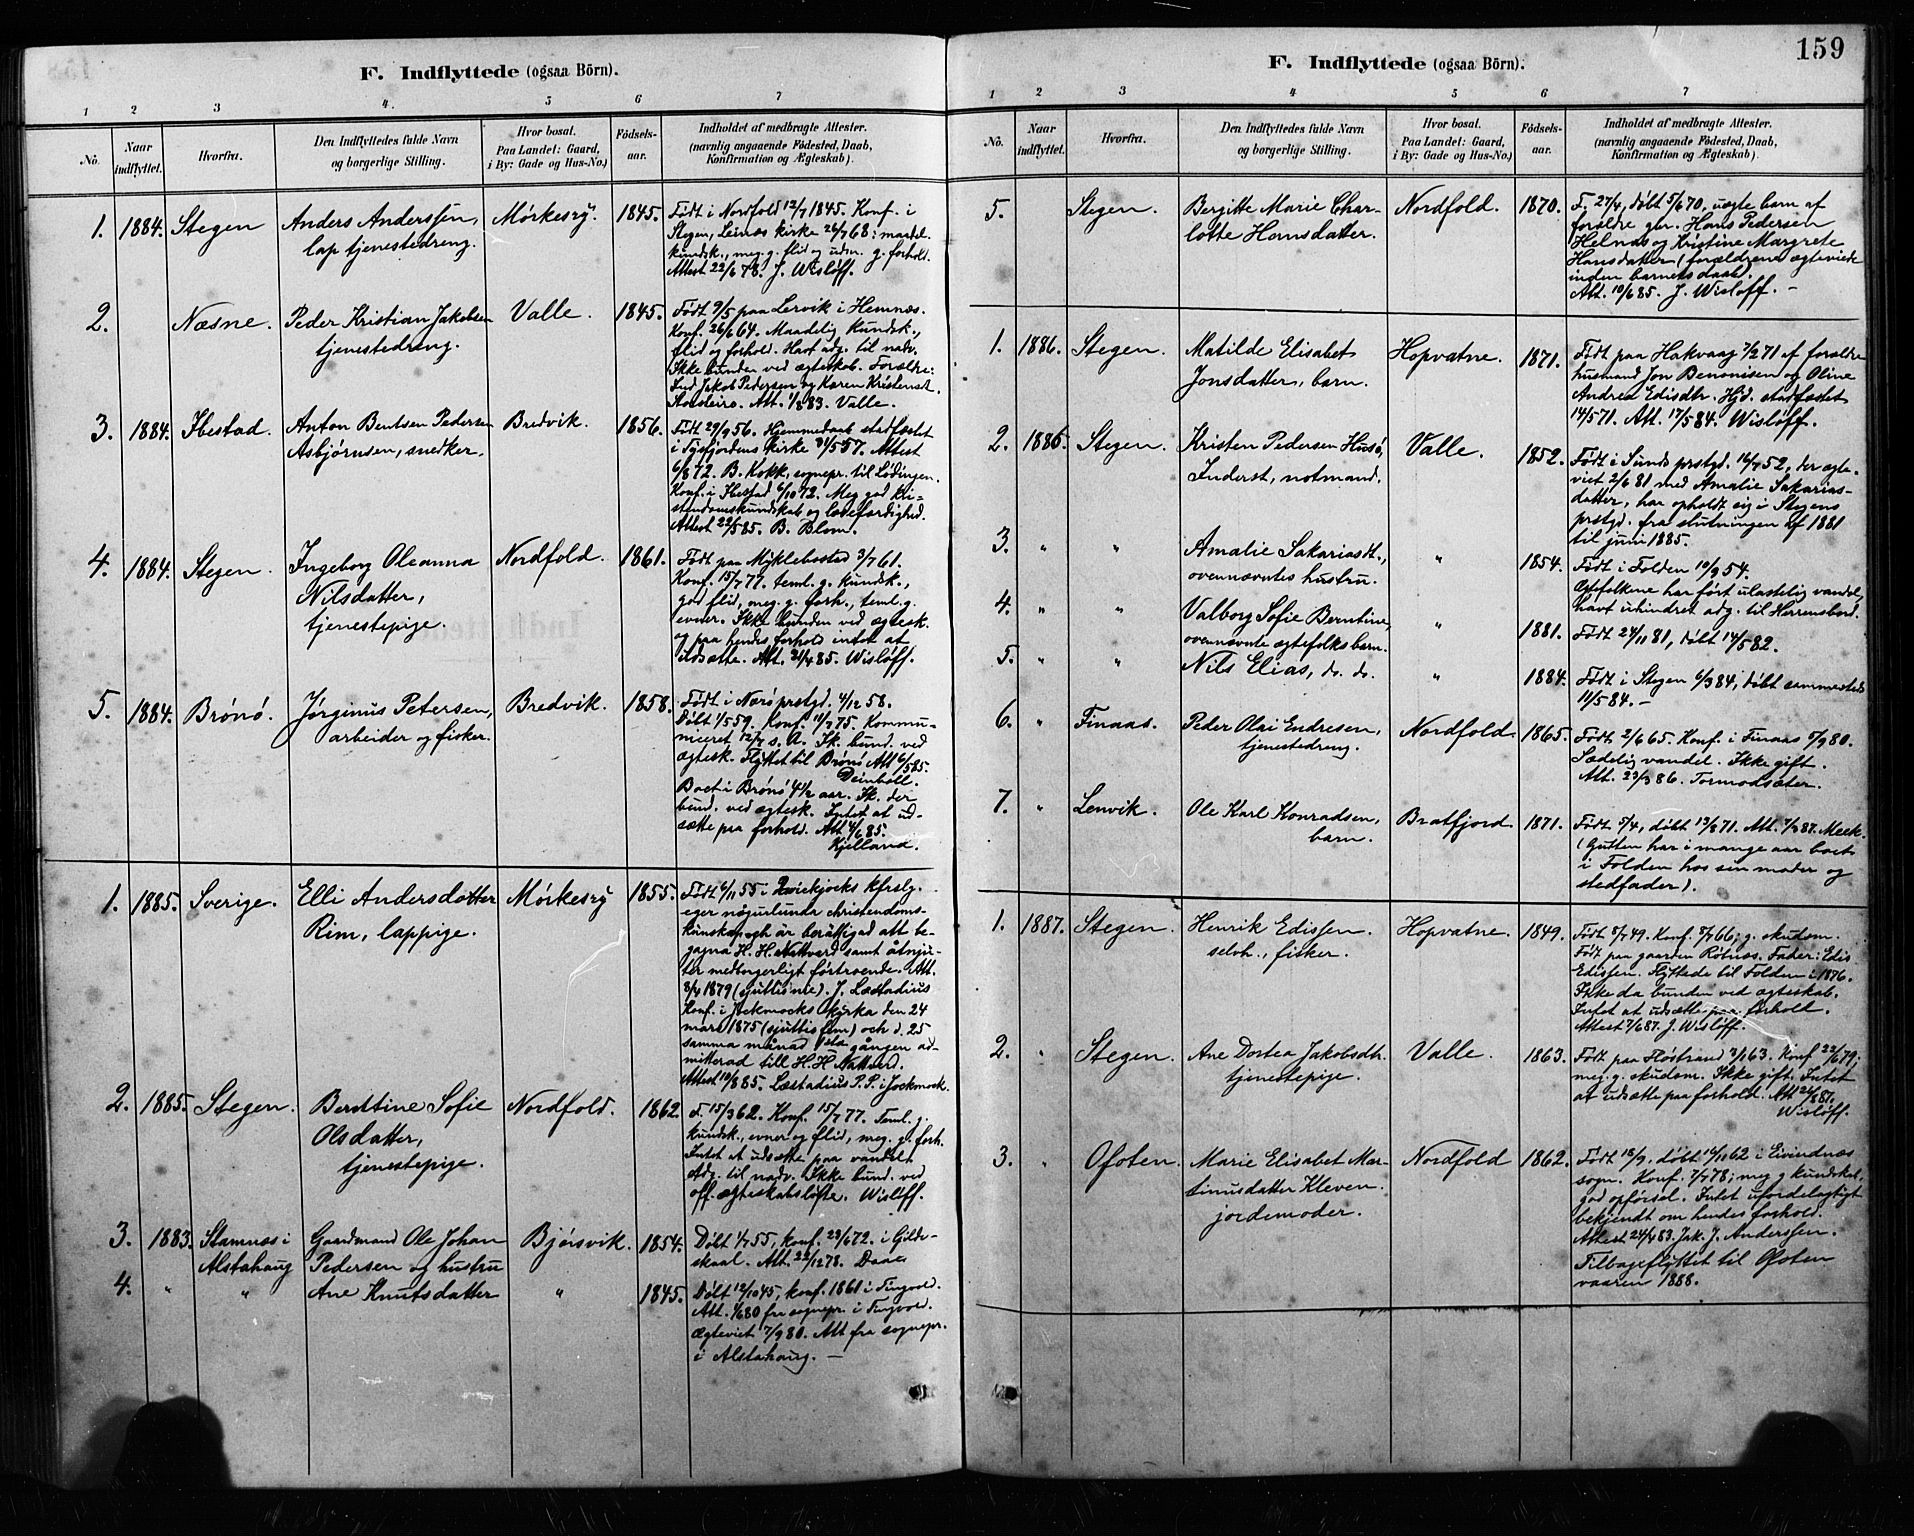 F. Indflyttede (ogsaa Börn).
1 2 3 4. 5 6 7
No.
Naar indflyttet.
Hvorfra.
Den Indflyttedes fulde Navn
og borgerlige Stilling.
Hvor bosat.
Paa Landet: Gaard,
i By: Gade og Hus-No.)
Fødselsaar.
Indholdet af medbragte Attester.
(navnlig angaaende Födested, Daab,
Konfirmation og Ægteskab).
1. 1884. Stegen Anders Anderssen, Mørkesvy. 1845.
lap tjenestedreng.
Født i Nordfold 12/7 1845. Konf. i
Stegen, Leinæs kirke 26/7 68: maadel.
kundsk., meg. g. flid og udm. g. forhold.
Attest 22/6 78. J. Wisløff.
2. Næsne. Peder Kristian Jakobsen Valle. 1845.
tjenestedreng.
Født 9/5 paa Lervik i Hemnæs.
Konf. 26/6 64. Maadelig kundsk.,
flid og forhold. Havt adg. til nadv.
Ikke bunden ved ægteskab. Forældre:
Ind. Jakob Pedersen og Karen Kristensd.
Att. 1/8 83. Valle.
3. 1884. Ibestad. Anton Bentsen Pedersen Bredvik 1856.
Asbjørnsen, snedker.
Født 29/9 56. Hjemmedaab stadfæstet
i Tysfjordens kirke 31/5 57. Attest
6/8 72. B. Kokk, sognepr. til Lødingen.
Konf. i Ibestad 6/10 72. Meg. god kri-
stendomskundskab og læsefærdighed.
Attest 22/5 85. B. Blom.
4. 1884. Stegen. Ingeborg Oleanna Nordfold. 1861.
Nilsdatter,
tjenestepige.
Født paa Myklebostad 3/7 61.
Konf. 15/7 77. teml. g. kundsk.,
god flid, meg. g. forh., teml. g.
evner. Ikke bunden ved ægtesk.
og paa hendes forhold intet at
udsætte. Att. 21/4 85. Wisløff.
5. 1884. Brønø. Jørginus Petersen, Bredvik. 1858.
arbeider og fisker.
Født i Nærø prstgd. 4/12 58.
Døbt 1/5 59. Konf. 11/7 75. Kommu-
niceret 12/7 s. A. Ik. bund. ved
ægtesk. Flyttet til Brønø Att 6/5 85.
Deinboll.
Boet i Brønø 4 1/2 aar. Ik. der
bund. ved ægtesk. Intet at ud-
sætte paa forhold. Att 4/6 85.
Kjelland.
1. 1885. Sverige. Elli Andersdatter Mørkesvy 1855.
Rim, lappige.
Født 6/11 55 i Qvickjocks Kfrslg.
eger nøgurlunda christendoms-
kunskap och är berättigad att be-
gagna H. H. Nattvard samt åtnju-
ter medborgerligt förtroende. Att.
3/4 1879 (sjuttisnie). J. Læstadius
Konf. i Jockmocks kyrka den 24
mars 1875 (sjuttis fem) och d. 25
samma månad 1sta gången ad-
mitterad till H. H. Nattvard.
Attest 10/8 85. Læstadius P. P. i Jockmock.
2. 1885. Stegen. Berntine Sofie Nordfold. 1862.
Olsdatter,
tjenestepige.
F. 15/3 62. Konf. 15/7 77. Teml. g.
kundsk., evner og flid, meg. g. forh.
Intet at udsætte paa vandelt
Adg. til nadv. Ikke bund. ved
off. ægteskabsløfte. Wisløff.
3. 1883. Stamnæs i Gaardmand Ole Johan Bjørsvik. 1854.
Alstahaug Pedersen og hustru
Døbt 1/7 55, konf. 23/6 72. i Gilde-
skaal. Att. 22/12 78. Daae
4. " " Ane Knutsdatter " 1845.
Døbt 12/10 45, konf. 1861 i Tingvold.
Att. 1/6 80 fra sognepr. i Tingvold.
Ægteviet 7/9 80. Att fra sognepr.
i Alstahaug. —
159
F. Indflyttede (ogsaa Börn).
1 2 3 4 5 6 7
No.
Naar indflyttet.
Hvorfra.
Den Indflyttedes fulde Navn
og borgerlige Stilling.
Hvor bosat.
Paa Landet: Gaard,
i By: Gade og Hus-No.)
Fødselsaar.
Indholdet af medbragte Attester.
(navnlig angaaende Födested, Daab,
Konfirmation og Ægteskab).
5. Stegen. Bergitte Marie Char- Nordfold. 1870.
lotte Hansdatter.
F. 27/4, døbt 5/6 70, uægte barn af
forældre gbr. Hans Pedersen
Helnæs og Kristine Margrete
Hansdatter (forældrene ægteviede
inden barnets daab).
Att. 10/6 85. J. Wisløff. —
1. 1886. Stegen. Matilde Elisabet Hopvatne. 1871.
Jonsdatter, barn.
Født paa Hakvaag 7/2 71 af forældre
husmand Jon Benonisen og Oline
Andrea Edisdtr. Hjd. stadfæstet
14/5 71. Att. 17/5 84. Wisløff.
2. 1886. Stegen. Kristen Pedersen Husø, Valle. 1852.
Inderst, notmand.
Født i Sunds prstgd. 16/7 52, der ægte-
viet 2/6 81 med Amalie Sakarias-
datter, har opholdt sig i Stegens
prstgd. fra slutningen af 1881
til juni 1885.
3. " " Amalie Sakariasdt., " 1854.
ovennævntes hustru.
Født i Folden 10/9 54.
Ægtefolkene har ført ulastelig vandel,
havt uhindret adg. til Herrensbord.
4. " " Valborg Sofie Berntine, " 1881.
ovennævnte ægtefolks barn.
Født 24/11 81, døbt 14/5 82.
5. " " Nils Elias, do. do. " 1884.
Født i Stegen 6/3 84, døbt sammesteds
11/5 84. —
6. " Finaas. Peder Olai Endresen, Nordfold. 1865.
tjenestedreng.
Født 2/6 65. Konf. i Finaas 5/9 80.
Sædelig vandel. Ikke gift.
Att. 23/3 86. Tormodsæter.
7. " Lenvik. Ole Karl Konradsen, Bratfjord. 1871.
barn.
Født 5/4, døbt 13/8 71. Att. 7/3 87. Meek.
(Gutten har i mange aar boet
i Folden hos sin moder og
stedfader).
1. 1887. Stegen. Henrik Edissen. Hopvatne. 1849.
selvh., fisker.
Født 5/7 49. Konf. 5/7 66; g. skudsm.
Født paa gaarden Robnæs. Fader: Edis
Edissen. Flyttede til Folden i 1876.
Ikke da bunden ved ægteskab.
Intet at udsætte paa forhold.
Attest 7/6 87. J. Wisløff.
2. " Stegen. Ane Dortea Jakobsdtr. Valle. 1863.
tjenestepige.
Født paa Fløstrand 3/1 63. Konf 22/6 79;
meg. g. skudsm. Ikke gift. Intet
at udsætte paa forhold. Att 24/8 87.
Wisløff.
3. " Ofoten. Marie Elisabet Mar- Nordfold 1862.
tinusdatter Kleven.
jordemoder.
Født 18/9. døbt 16/11 62 i Eivindnæs
sogn. Konf. 7/7 78; meg g kundskab,
god opførsel. Intet ufordelagtigt
bekjendt om hendes forhold.
Attest 24/4 83. Jak. J. Anderssen.
Tilbageflyttet til Ofoten
vaaren 1888.